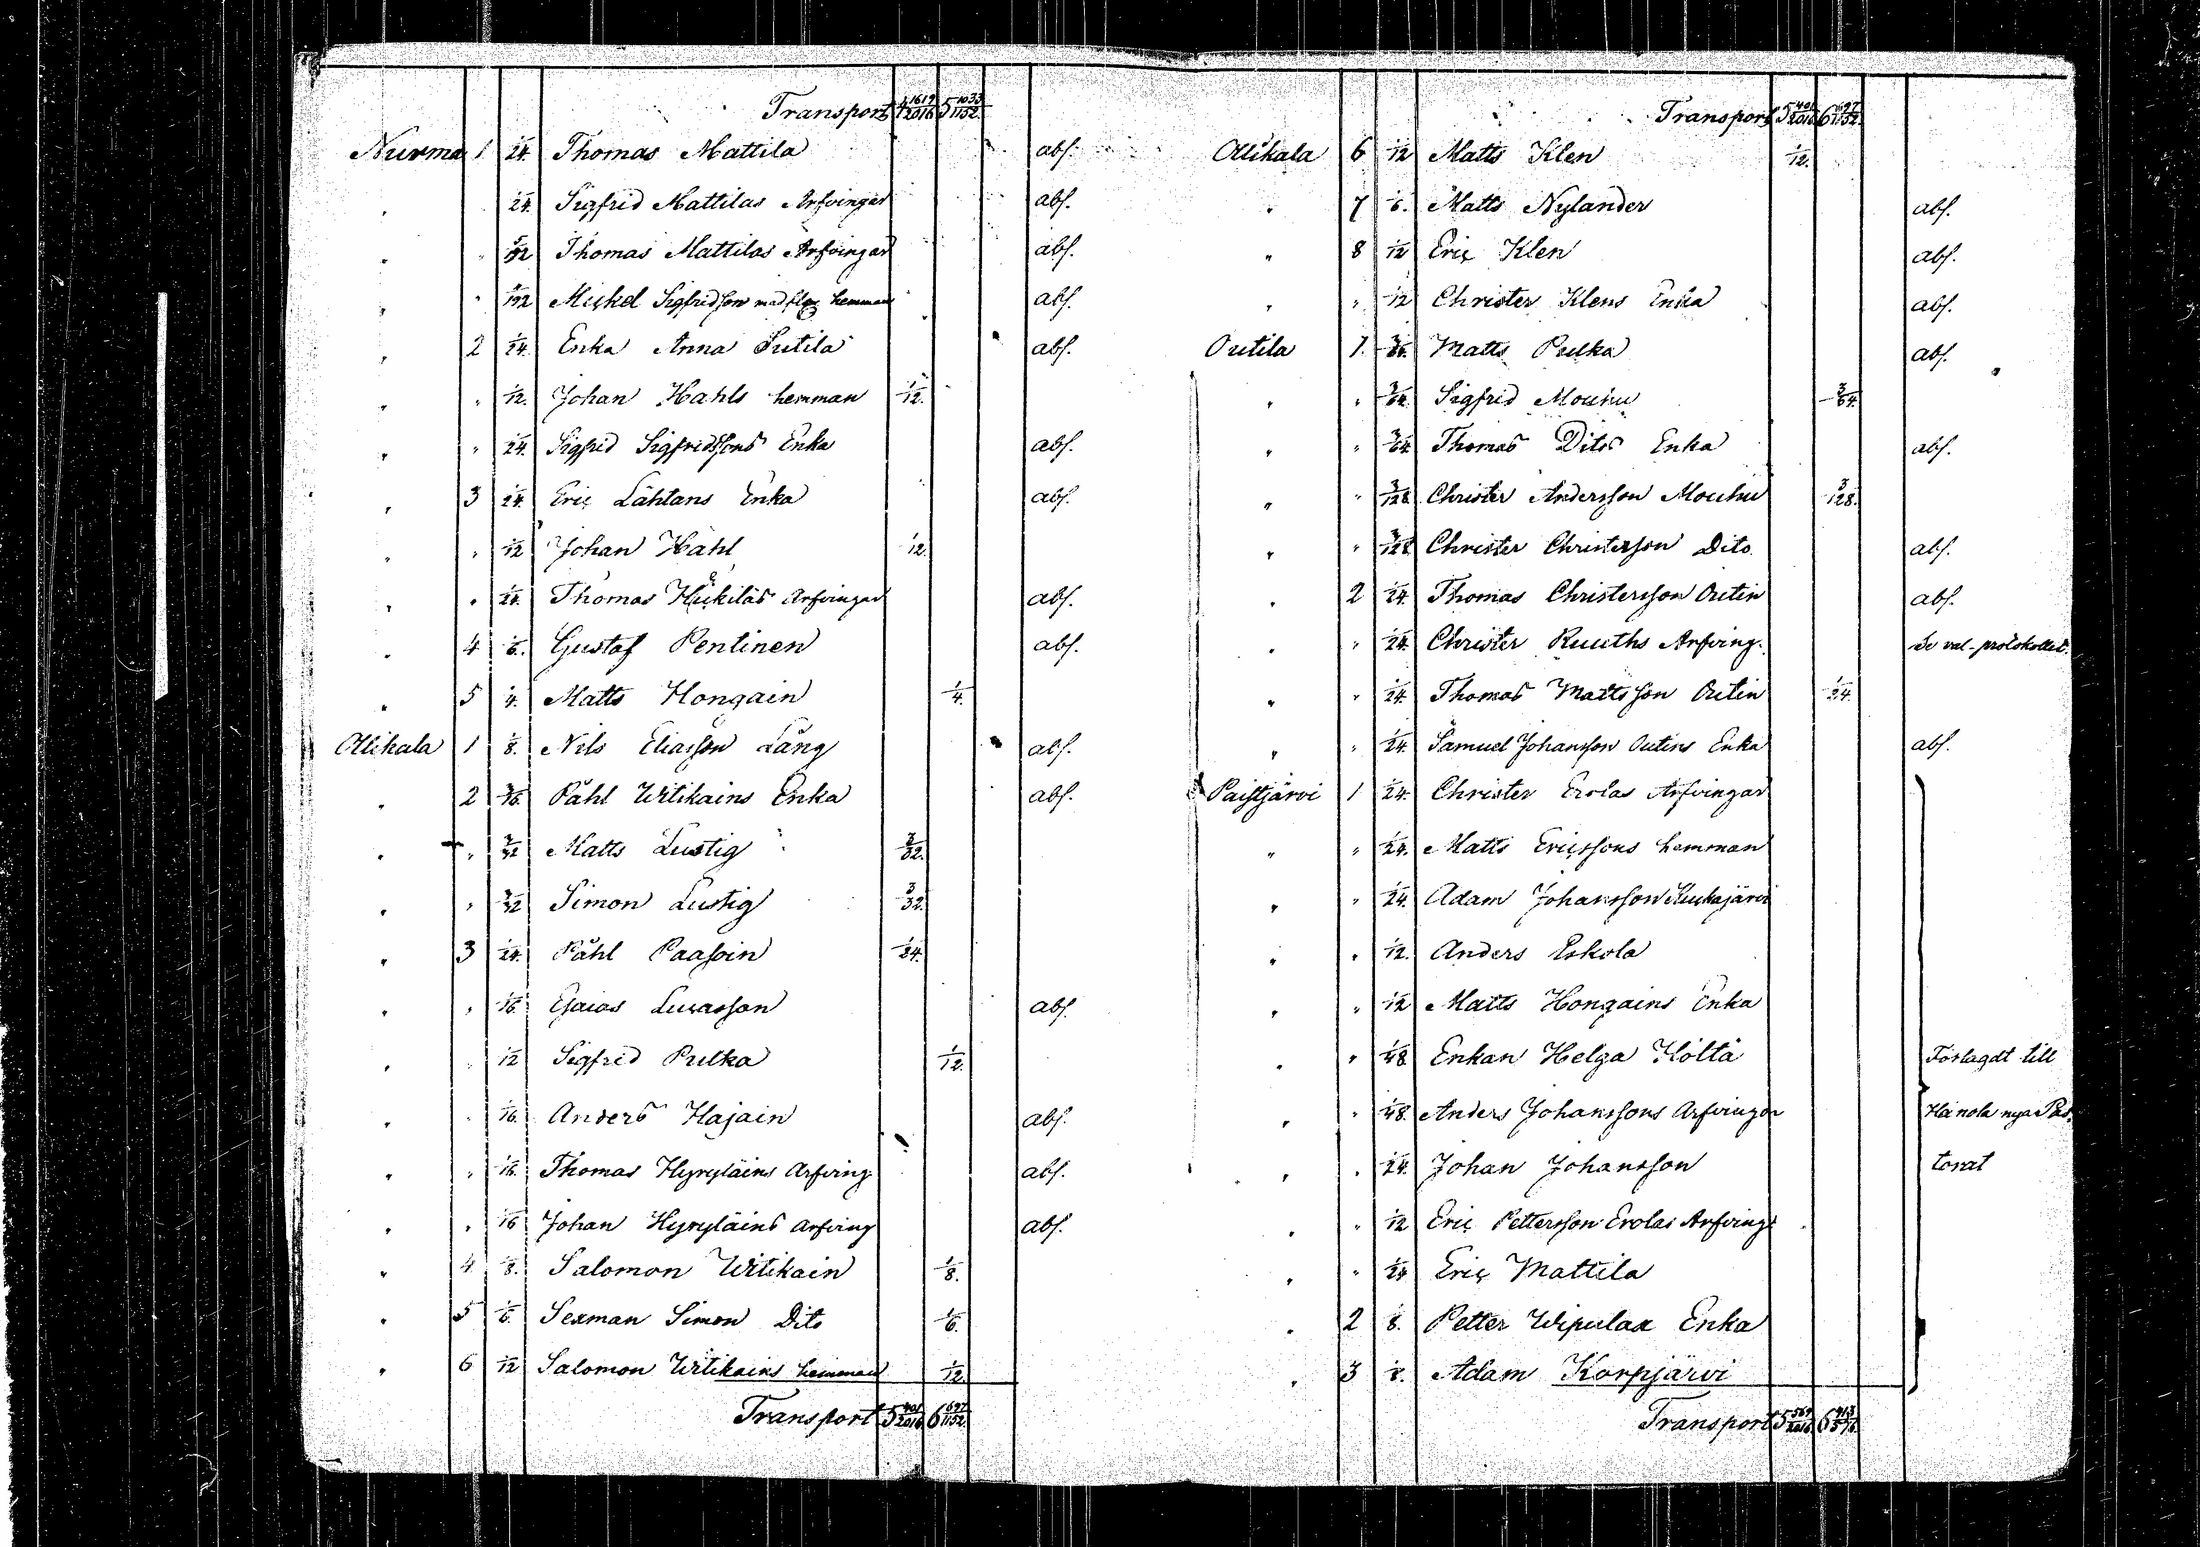 Transport 4 1619/2016 5 1033/1152
Nurma 1 1/24. Thomas Mattila abs.
" 1/24. Sigfrid Mattilas Arfvingar abs.
" " Thomas Mattilas Arfvingar abs.
" " Mickel Sigfridsson hemman abs.
" 2 1/24. Enka Anna Sutila abs.
" " 1/12. Johan Hahls hemman 1/12.
" " 1/24. Sigfrid Sigfridssons Enka abs.
" 3 1/24. Eric Lähtans Enka abs.
" " 1/12 Johan Hahl 1/12.
" " 1/24. Thomas Arfvingar abs.
" 4 1/6. Gustaf Pentinen abs.
" 5 1/4. Matts Hongain 1/4.
Ollikala 1 1/8. Nils Eliasson Lång abs.
" 2 3/16. Påhl Witikains Enka abs.
" " 3/32 Matts Lustig 3/32.
" " 3/32 Simon Lustig 3/32.
" 3 1/24. Påhl Paasoin 1/24.
" " 1/16. Esaias Lucasson abs.
" " 1/12 Sigfrid Pulka 1/12.
" " 1/16. Anders Hajain abs.
" " 1/16. Thomas Hyryläins Arfving abs.
" " 1/16 Johan Hyryläins Arfving abs.
" 4 1/8. Salomon Witikain 1/8.
" 5 1/6. Sexman Simon Dito 1/6.
" 6 1/12 Salomon Witikains hemman 1/12.
Transport 5 401/2016 6 697/1152.
Transport 5 401/2016 6 697/1152.
Ollikala 6 1/12 Matts Klen 1/12.
" 7 1/6. Matts Nylander abs.
" 8 1/12 Eric Klen abs.
" " 1/12 Christer Klens Enka abs.
Outila 1. 3/64. Matts Pulka abs.
" " 3/64. Sigfrid Mouhu 3/64.
" " 3/64 Thomas Ditos Enka abs.
" " 3/128 Christer Andersson Mouhu 3/128.
" " 3/128 Christer Christersson Dito. abs.
" 2 1/24. Thomas Christersson Outin abs.
" " 1/24. Christer Ruuths Arfving. Se val-protokollet.
" " 1/24. Thomas Mattsson Outin 1/24.
" " 1/24. Samuel Johansson Outins Enka abs.
Paistjärvi 1 1/24. Christer Erolas Arfvingar
" " 1/24. Matts Ericssons hemman
" " 1/24. Adam Johansson
" " 1/12. Anders Eskola
" " 1/12 Matts Hongains Enka
" " 1/48 Enkan Helga Höltä Förlagdt till
" " 1/48. Anders Johanssons Arfvingar Heinola nya Pas-
" " 1/24. Johan Johansson torat
" " 1/12 Eric Pettersson Erolas Arfving:
" " 1/24 Eric Mattila
" 2 1/8. Petter Wipulax Enka
" 3 1/8. Adam Korpjärvi
Transport 5 569/2016 6 413/576.